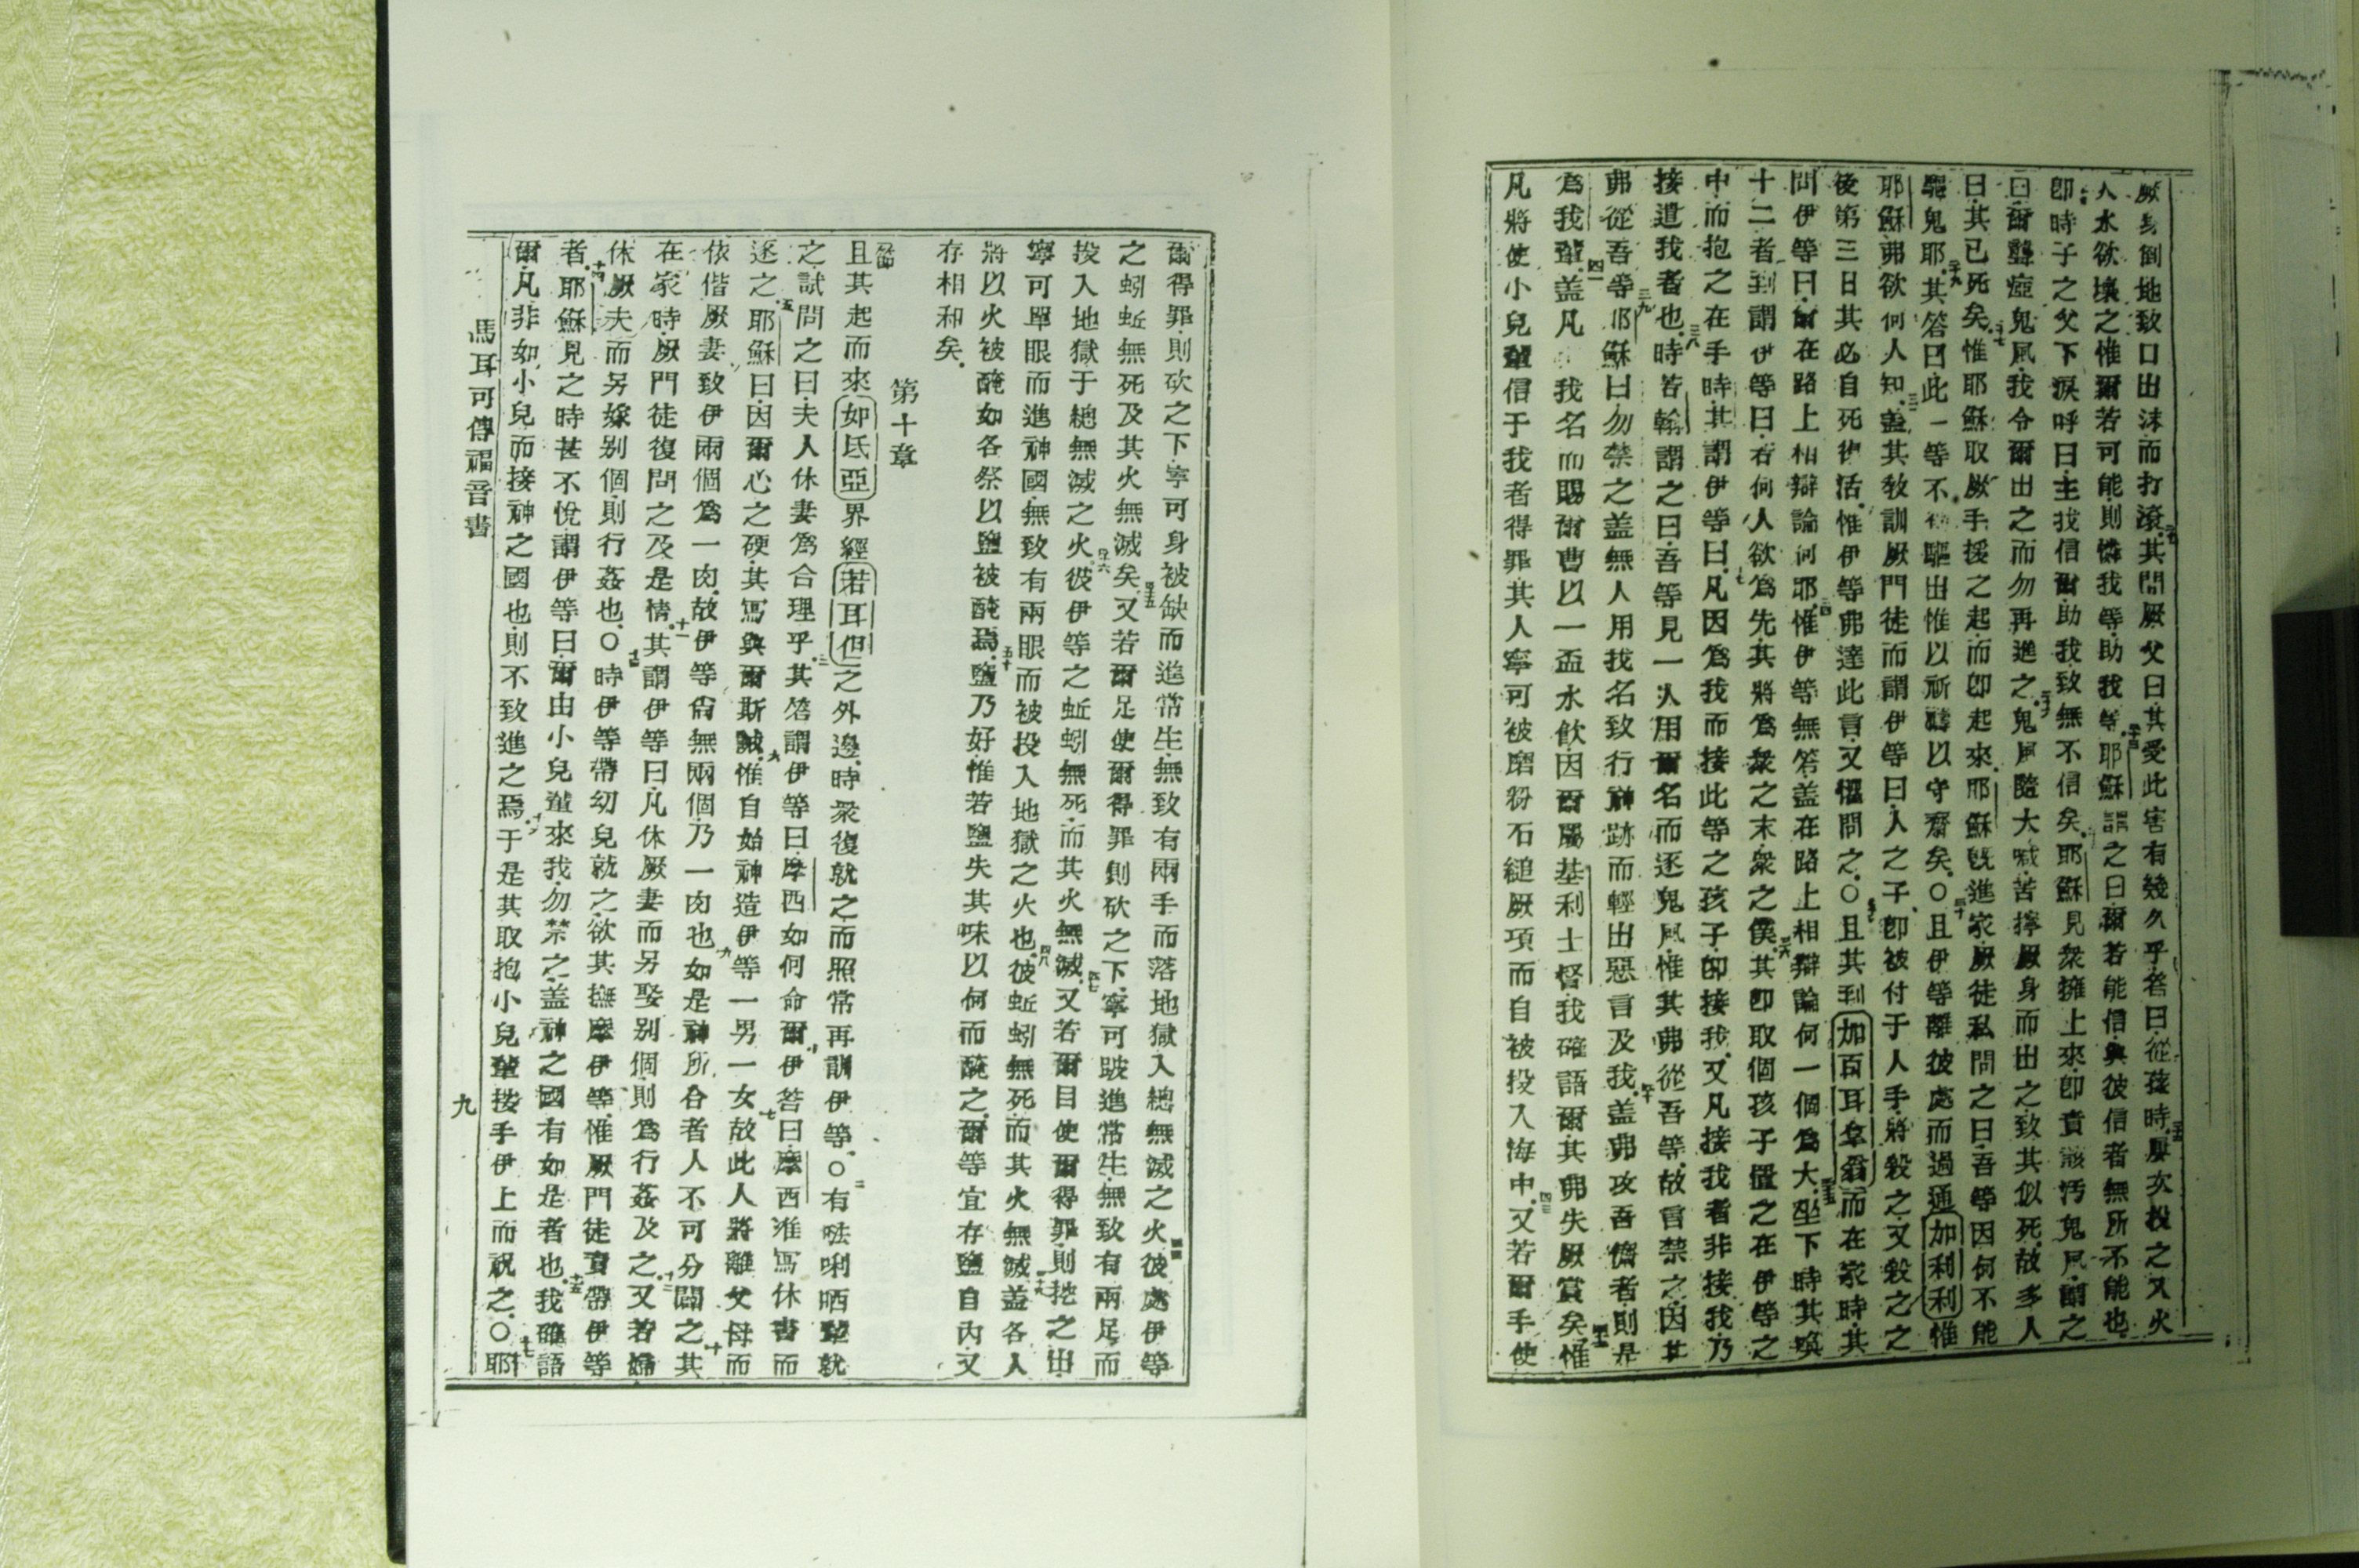 厥身倒地致口出沫而打滾其問厥父曰其愛此害有幾久乎答曰從孩時屢次投之又火
入水欲壞之惟爾若可能則憐我等助我等耶穌謂之曰爾若能信與彼信者無所不能也
即時子之父下淚呼曰主我信爾助我致無不信矣耶穌見衆擁上來即責該汚鬼風謂之
曰爾聾瘂鬼風我令爾出之而勿再進之鬼風隨大喊苦擰厥身而出之致其似死故多人
曰其已死矣惟耶穌取厥手援之起而即起來耶穌既進家厥徒私問之曰吾等因何不能
驅鬼耶其答曰此一等不驅出惟以祈禱以守齋矣○且伊等離彼處而過通加利利惟
耶穌弗欲何人知蓋其敎訓厥門徒而謂伊等曰人之子即被付于人手將殺之又殺之之
後第三日其必自死復活惟伊等弗達此言又懼問之○且其到加百耳拿翁而在家時其
問伊等曰爾在路上相辯論何耶惟伊等無答蓋在路上相辯論何一個爲大坐下時其喚
十二者到謂伊等曰若何人欲爲先其將爲衆之末衆之僕其即取個孩子置之在伊等之
中而抱之在手時其謂伊等曰凡因爲我而接此等之孩子即接我又凡接我者非接我乃
接遣我者也時若翰謂之曰吾等見一人用爾名而逐鬼風惟其弗從吾等故言禁之因其
弗從吾等耶穌曰勿禁之蓋無人用我名致行神跡而輕出惡言及我蓋弗攻吾儕者則是
爲我輩蓋凡我名而賜爾曹以一盃水飲因爾屬基利士督我確語爾其弗失厥賞矣惟
凡將使小兒輩信于我者得罪其人寧可被磨粉石縋厥項而自被投入海中又若爾手使
爾得罪則砍之下寧可身被缺而進常生無致有兩手而落地獄入總無滅之火彼處伊等
之蚓蚯無死及其火無滅矣又若爾足使爾得罪則砍之下寧可跛進常生無致有兩足而
投入地獄于總無滅之火彼伊等之蚯蚓無死而其火無滅又若爾目使爾得罪則挖之出
寧可單眼而進神國無致有兩眼而被投入地獄之火也彼蚯蚓無死而其火無滅蓋各人
將以火被醃如各祭以鹽被醃焉鹽乃好惟若鹽失其味以何而醃之爾等宜存鹽自內又
存相和矣
第十章
且其起而來如氐亞界經若耳但之外邊時衆復就之而照常再訓伊等○有𠵽唎哂輩就
之試問之曰夫人休妻爲合理乎其答謂伊等曰摩西如何命爾伊答曰摩西准寫休書而
逐之耶穌曰因爾心之硬其寫與爾斯誡惟自始神造伊等一男一女故此人將離父母而
依偕厥妻致伊兩個爲一肉故伊等尙無兩個乃一肉也如是神所合者人不可分開之其
在家時厥門徒復問之及是情其謂伊等曰凡休厥妻而另娶别個則爲行姦及之又若婦
休厥夫而另嫁别個則行姦也○時伊等帶幼兒就之欲其撫摩伊等惟厥門徒責帶伊等
者耶穌見之時甚不悅謂伊等曰爾由小兒輩來我勿禁之蓋神之國有如是者也我確語
爾凡非如小兒而接神之國也則不致進之焉于是其取抱小兒輩按手伊上而祝之○耶
馬耳可傳福音書
九